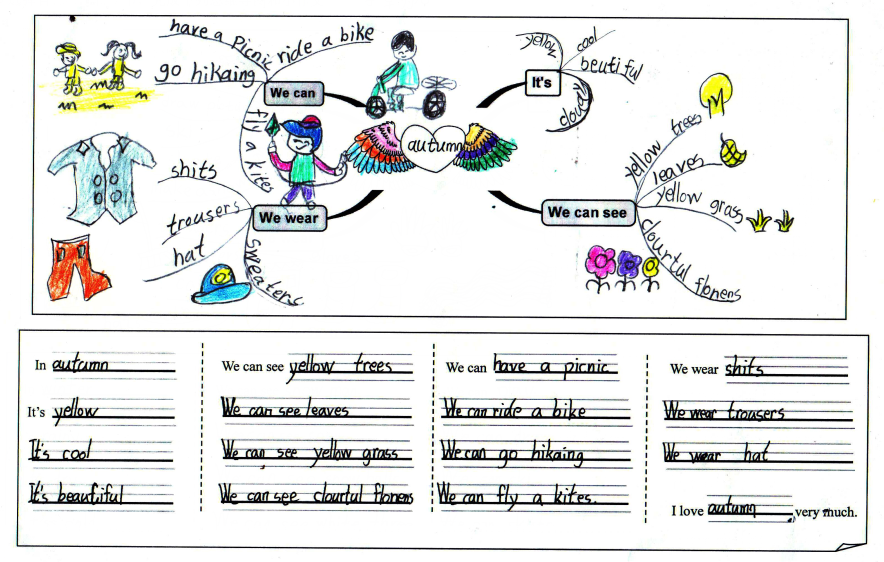 have a picnic
ride a bike
go hikaing
We can
fly a kites
autumn
It's
yellow
cool
beutiful
cloudy
shits
trousers
hat
We wear
sweaters
We can see
yellow trees
leaves
yellow grass
clourtul flonens
In autumn
It's yellow
It's cool
It's beautiful
We can see yellow trees
We can see leaves
We can see yellow grass
We can see clourtul flonens
We can have a picnic
We can ride a bike
We can go hikaing
We can fly a kites.
We wear shits
We wear trousers
We wear hat
I love autumn very much.